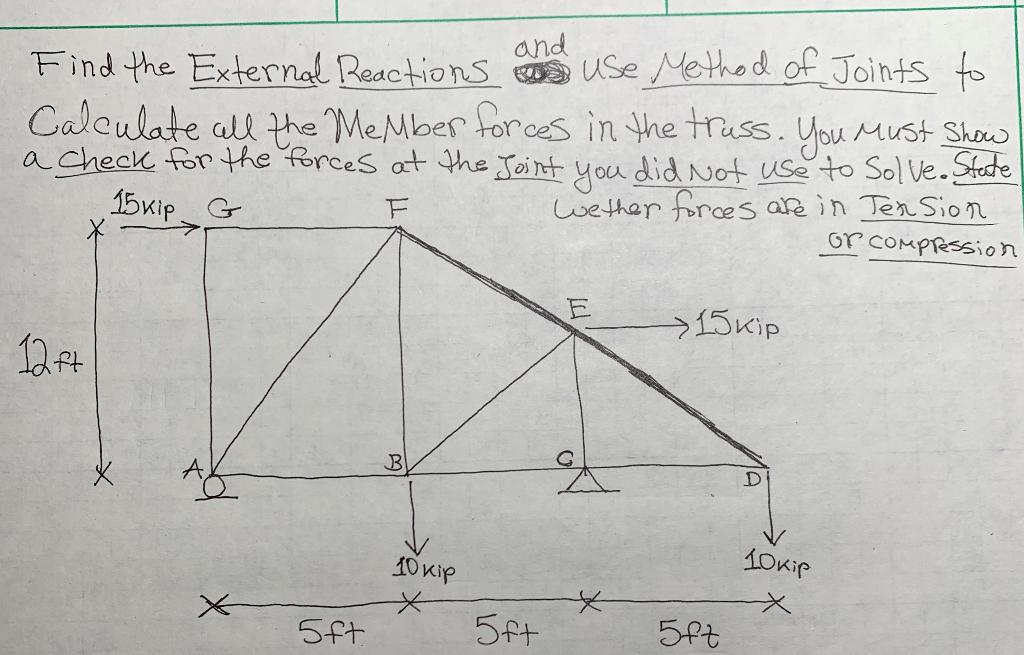 Find the External Reactions and use Method of Joints to
Calculate all the MeMber forces in the truss. You Must Show
a check for the forces at the Joint you did Not use to Solve. State
wether forces are in TenSion
or compression
15Kip G F
E
15Kip
12ft
A B C D
10Kip 10Kip
5ft 5ft 5ft